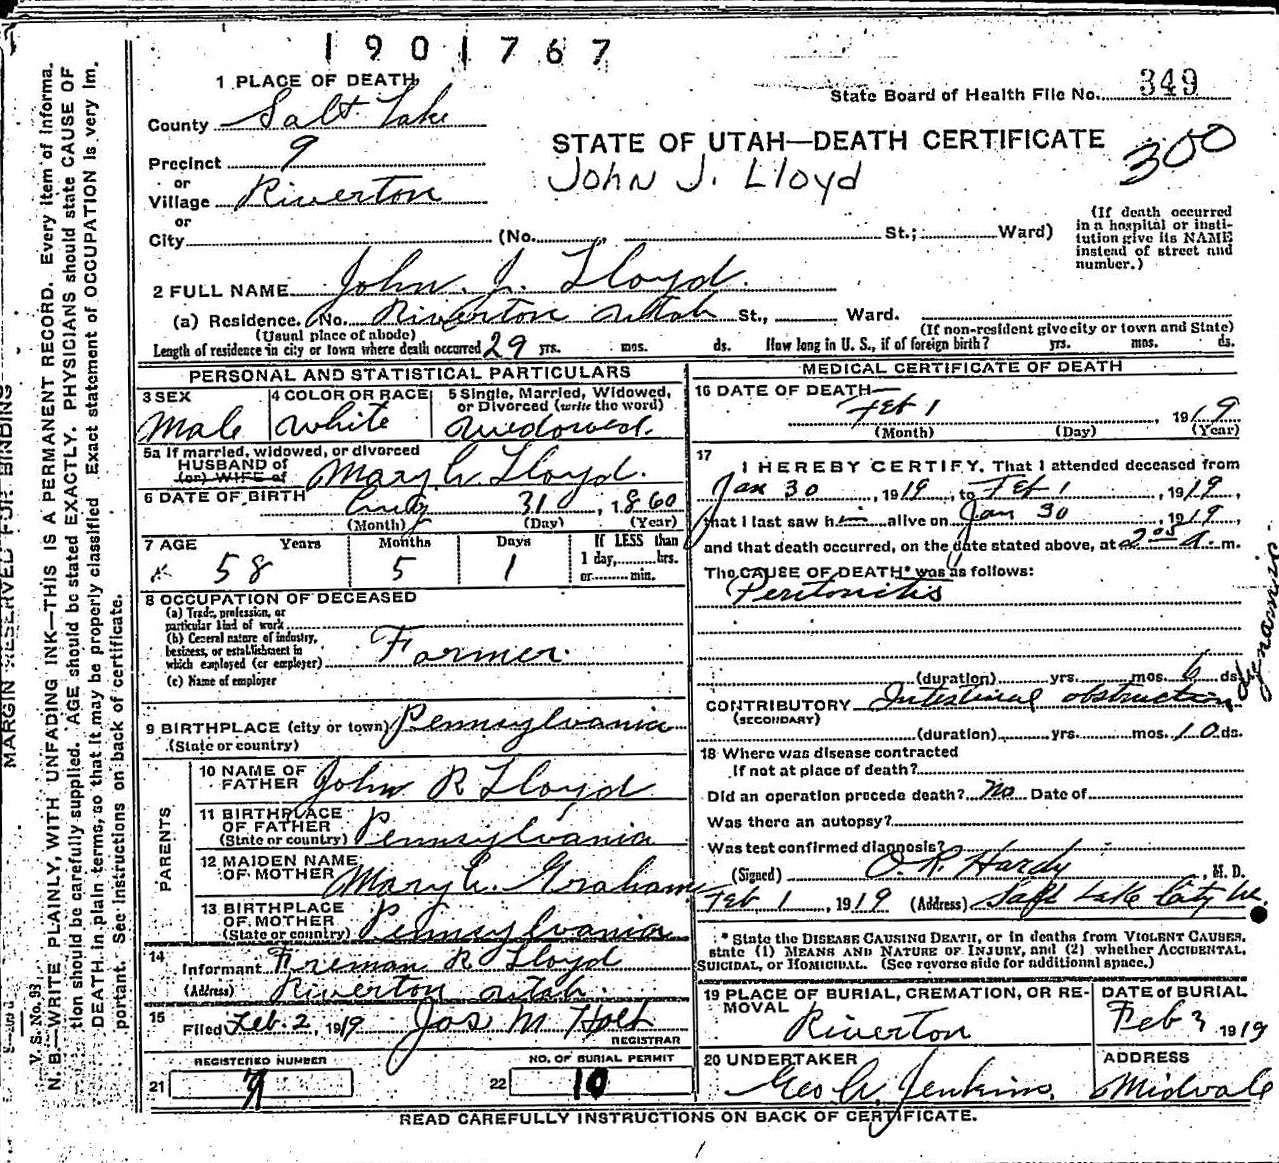 1901767
1 PLACE OF DEATH
State Board of Health File No. 349
County Salt Lake
STATE OF UTAH—DEATH CERTIFICATE
300
Precinct 9
John J. Lloyd
or
Village Riverton
or
City (No. St.; Ward)
(If death occurred
in a hospital or insti-
tution give its NAME
instead of street and
number.)
2 FULL NAME John J. Lloyd.
(a) Residence. No. Riverton Utah St., Ward.
(Usual place of abode) (If non-resident give city or town and State)
Length of residence in city or town where death occurred 29 yrs. mos. ds. How long in U. S., if of foreign birth? yrs. mos. ds.
PERSONAL AND STATISTICAL PARTICULARS
3 SEX
Male
4 COLOR OR RACE
White
5 Single, Married, Widowed,
or Divorced (write the word)
Widowed.
5a If married, widowed, or divorced
HUSBAND of
(or) WIFE of Mary C. Lloyd.
6 DATE OF BIRTH 31, 1860
(Month) (Day) (Year)
7 AGE Years Months Days If LESS than
58 5 1 1 day, hrs.
or min.
8 OCCUPATION OF DECEASED
(a) Trade, profession, or
particular kind of work
(b) General nature of industry,
business, or establishment in
which employed (or employer) Farmer.
(c) Name of employer
9 BIRTHPLACE (city or town) Pennsylvania
(State or country)
PARENTS
10 NAME OF
FATHER John R Lloyd
11 BIRTHPLACE
OF FATHER
(State or country) Pennsylvania
12 MAIDEN NAME
OF MOTHER Mary C. Graham
13 BIRTHPLACE
OF MOTHER
(State or country) Pennsylvania
14
Informant Freman R Lloyd
(Address) Riverton Utah.
15
Filed Feb. 2, 1919 Jos M Holt
REGISTRAR
REGISTERED NUMBER
21
NO. OF BURIAL PERMIT
22 10
MEDICAL CERTIFICATE OF DEATH
16 DATE OF DEATH—
Feb 1 1919
(Month) (Day) (Year)
17
I HEREBY CERTIFY, That I attended deceased from
Jan 30, 1919, to Feb 1, 1919,
that I last saw him alive on Jan 30, 1919,
and that death occurred, on the date stated above, at 2 05 A. m.
The CAUSE OF DEATH* was as follows:
Peritonitis
(duration) yrs. mos. 6 ds.
CONTRIBUTORY Intestinal obstruction
(SECONDARY)
dynamic
(duration) yrs. mos. 10 ds.
18 Where was disease contracted
If not at place of death?
Did an operation precede death? No Date of
Was there an autopsy?
Was test confirmed diagnosis?
(Signed) O. R. Hardy, M. D.
Feb 1, 1919 (Address) Salt Lake City Ut.
* State the DISEASE CAUSING DEATH, or in deaths from VIOLENT CAUSES,
state (1) MEANS AND NATURE OF INJURY, and (2) whether ACCIDENTAL,
SUICIDAL, or HOMICIDAL. (See reverse side for additional space.)
19 PLACE OF BURIAL, CREMATION, OR RE-
MOVAL Riverton
DATE of BURIAL
Feb 3 1919
20 UNDERTAKER
Geo A. Jenkins.
ADDRESS
Midvale
READ CAREFULLY INSTRUCTIONS ON BACK OF CERTIFICATE.
MARGIN RESERVED FOR BINDING
V. S. No. 93
N. B.—WRITE PLAINLY, WITH UNFADING INK—THIS IS A PERMANENT RECORD. Every item of informa-
tion should be carefully supplied. AGE should be stated EXACTLY. PHYSICIANS should state CAUSE OF
DEATH in plain terms, so that it may be properly classified. Exact statement of OCCUPATION is very im-
portant. See instructions on back of certificate.